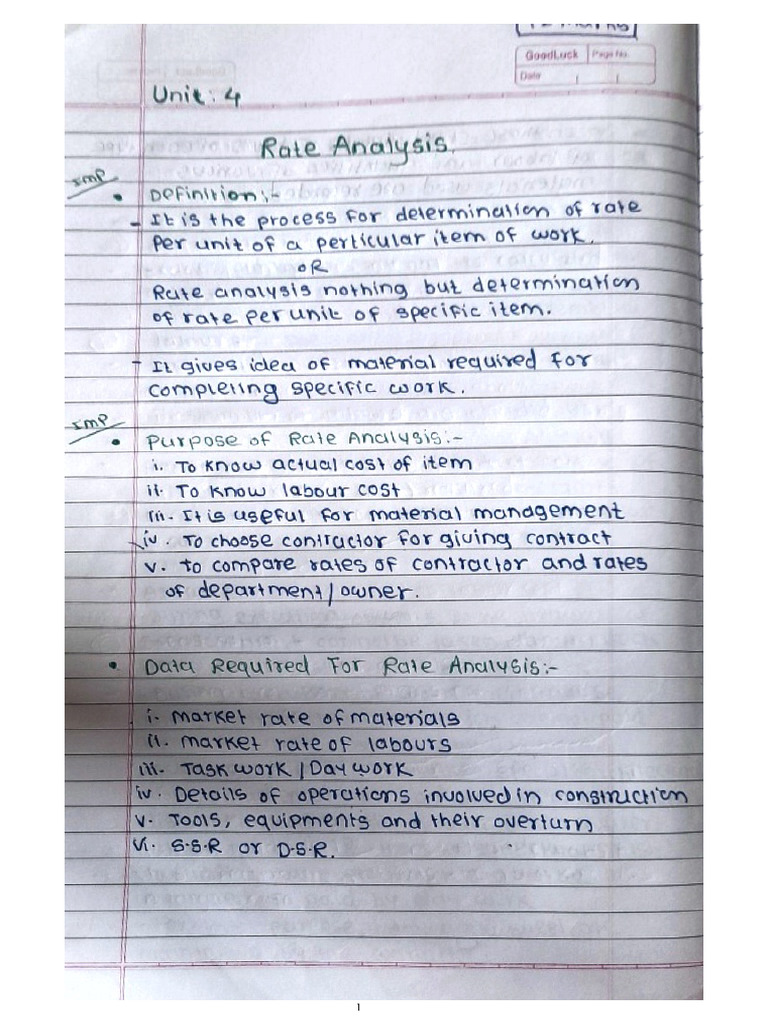 GoodLuck Page No.
Date
Unit : 4
Rate Analysis.
IMP
• Definition:-
- It is the process for determination of rate
Per unit of a perticular item of work.
OR
Rate analysis nothing but determination
of rate per unit of specific item.
- It gives idea of material required for
completing specific work.
IMP
• Purpose of Rate Analysis:-
i. To know actual cost of item
ii. To know labour cost
iii. It is useful for material management
iv. To choose contractor for giving contract
v. to compare rates of contractor and rates
of department/owner.
• Data Required For Rate Analysis:-
i. market rate of materials
ii. market rate of labours
iii. Task work / Day work
iv. Details of operations involved in construction
v. Tools, equipments and their overturn
vi. S.S.R or D.S.R.
1